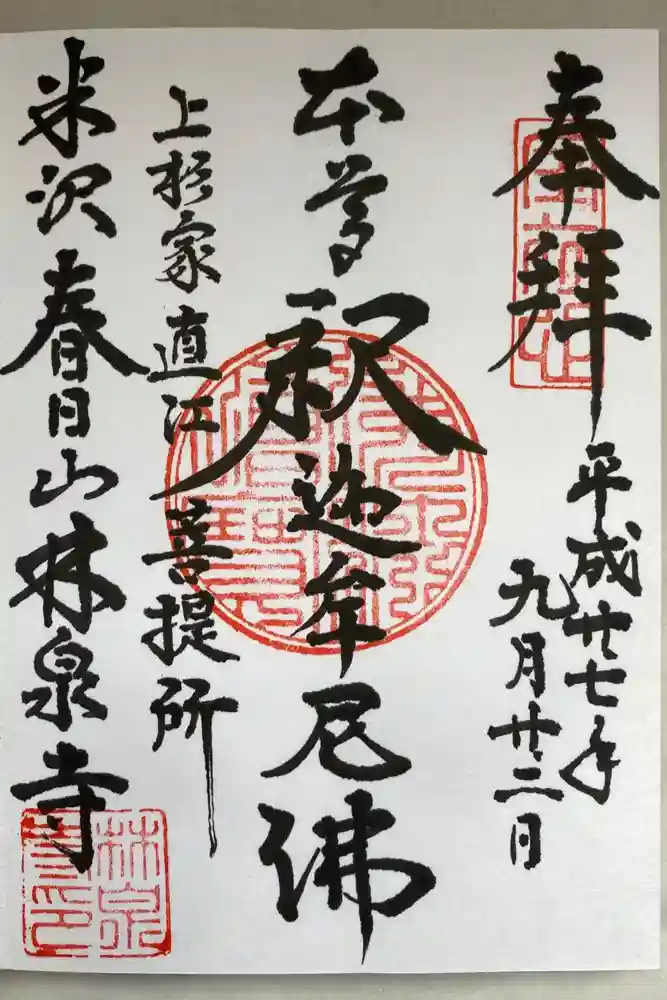 奉拝
平成廿七年
九月廿二日
本尊釈迦牟尼佛
上杉家直江菩提所
米沢春日山林泉寺
林泉
寺印